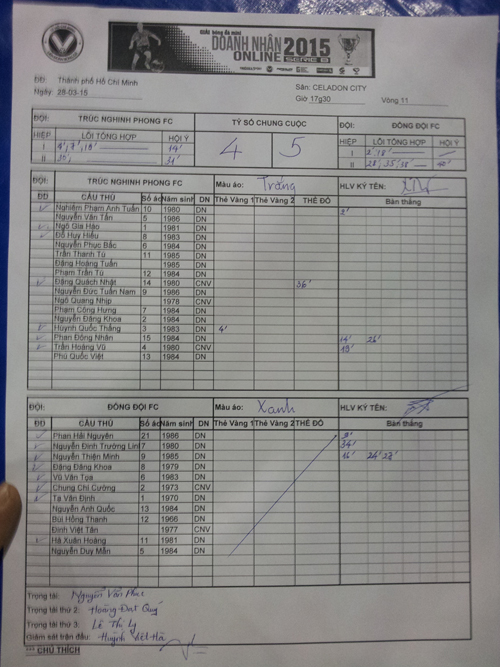 GIẢI bóng đá mini
DOANH NHÂN 2015
ONLINE SERIE B
ĐĐ: Thành phố Hồ Chí Minh
Sân: CELADON CITY
Ngày: 28-03-15
Giờ 17g30 Vòng 11
ĐỘI: TRÚC NGHINH PHONG FC TỶ SỐ CHUNG CUỘC ĐỘI: ĐỒNG ĐỘI FC
HIỆP LỖI TỔNG HỢP HỘI Ý 4 5 HIỆP LỖI TỔNG HỢP HỘI Ý
I 14' I 2' 18'
II 30' 34' II 28' 35' 38' 40'
ĐỘI: TRÚC NGHINH PHONG FC Màu áo: Trắng HLV KÝ TÊN:
ĐD CẦU THỦ Số áo Năm sinh DN Thẻ Vàng 1 Thẻ Vàng 2 THẺ ĐỎ Bàn thắng
Nghiêm Phạm Anh Tuấn 10 1980 DN 2'
Nguyễn Văn Tân 5 1986 DN
Ngô Gia Hào 1 1981 DN
Đỗ Huy Hiếu 8 1983 DN
Nguyễn Phục Bắc 6 1984 DN
Trần Thanh Tú 11 1985 DN
Đặng Hoàng Tuấn 1985 DN
Phạm Trần Tú 12 1984 DN
Đặng Quách Nhật 14 1980 CNV 36'
Nguyễn Đức Tuấn Nam 9 1986 DN
Ngô Quang Nhịp 1978 CNV
Phạm Công Hưng 7 1984 DN
Nguyễn Đăng Khoa 2 1984 DN
Huỳnh Quốc Thắng 3 1983 DN 4'
Phan Đông Nhân 15 1984 DN 14' 26'
Trần Hoàng Vũ 4 1980 CNV 19'
Phú Quốc Việt 13 1984 DN
ĐỘI: ĐỒNG ĐỘI FC Màu áo: Xanh HLV KÝ TÊN:
ĐD CẦU THỦ Số áo Năm sinh DN Thẻ Vàng 1 Thẻ Vàng 2 THẺ ĐỎ Bàn thắng
Phan Hải Nguyên 21 1986 DN 9'
Nguyễn Đinh Trường Lin 7 1980 DN 34'
Nguyễn Thiện Minh 9 1985 DN 16' 24' 28'
Đặng Đăng Khoa 8 1979 DN
Vũ Văn Tọa 6 1983 DN
Chung Chí Cường 2 1973 CNV
Tạ Văn Định 1 1970 DN
Nguyễn Anh Quốc 13 1984 DN
Bùi Hồng Thanh 12 1966 DN
Đinh Việt Tân 1977 CNV
Hà Xuân Hoàng 11 1981 DN
Nguyễn Duy Mẫn 5 1984 DN
Trọng tài: Nguyễn Văn Phúc
Trọng tài thứ 2: Hoàng Đạt Quý
Trọng tài thứ 3: Lê Thi Ly
Giám sát trận đấu: Huỳnh Việt Hà
*** CHÚ THÍCH